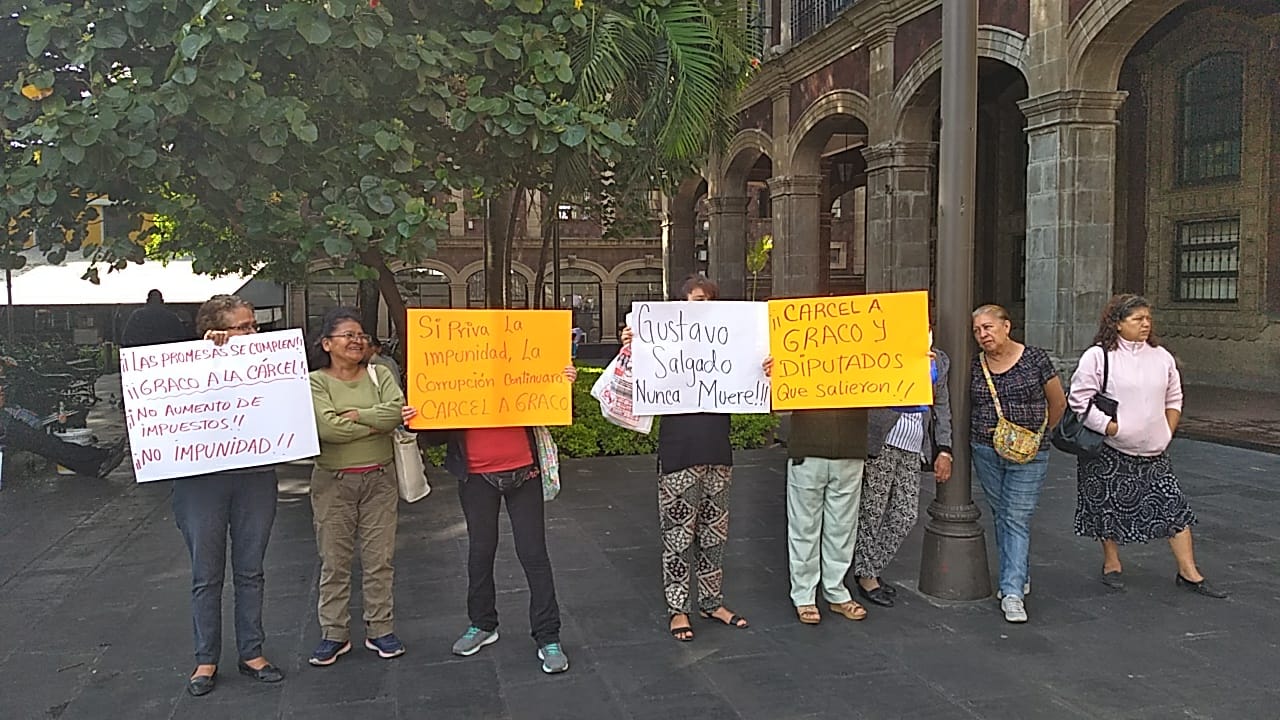 ¡LAS PROMESAS SE CUMPLEN!!
¡¡GRACO A LA CÁRCEL!
¡NO AUMENTO DE
IMPUESTOS!!
¡NO IMPUNIDAD!!
Si Priva La
impunidad, La
Corrupción Continuara
CARCEL A GRACO
Gustavo
Salgado
Nunca Muere!!!
¡¡CARCEL A
GRACO Y
DIPUTADOS
Que salieron!!